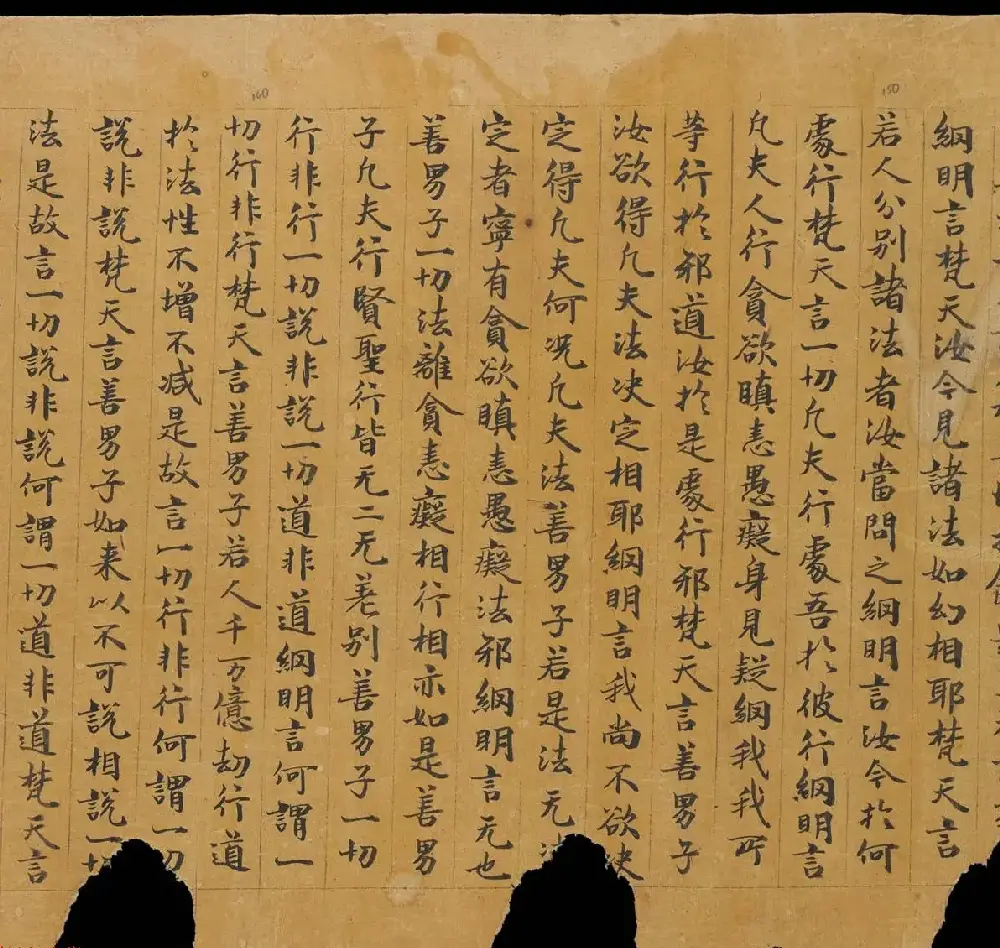 網明言梵天汝今見諸法如幻相耶梵天言
若人分別諸法者汝當問之網明言汝今於何
處行梵天言一切凡夫行處吾於彼行網明言
凡夫人行貪欲瞋恚愚癡身見疑網我我所
等行於邪道汝於是處行邪梵天言善男子
汝欲得凡夫法决定相耶網明言我尚不欲决
定得凡夫何况凡夫法善男子若是法无决
定者寧有貪欲瞋恚愚癡法邪網明言无也
善男子一切法離貪恚癡相行相亦如是善男
子凡夫行賢聖行皆无二无差別善男子一切
行非行一切說非說一切道非道網明言何謂一
切行非行梵天言善男子若人千万億劫行道
於法性不增不减是故言一切行非行何謂一切
說非說梵天言善男子如来以不可說相說一切
法是故言一切說非說何謂一切道非道梵天言
150
160